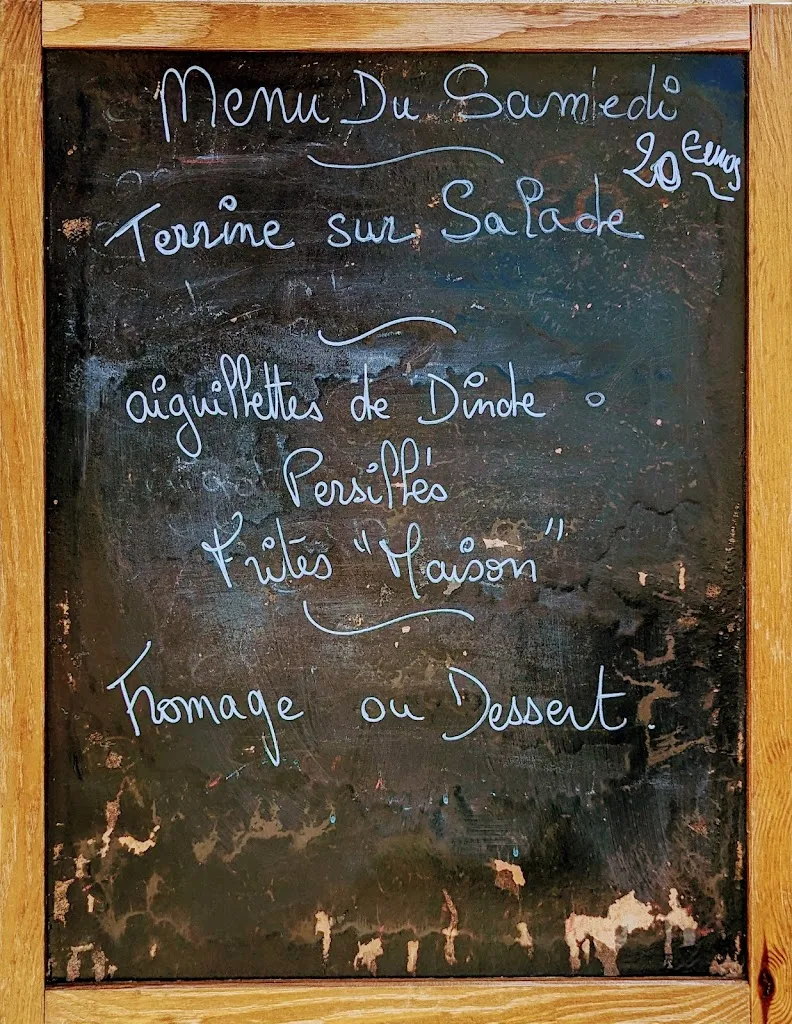 Menu Du Samedi
20 Euros
Terrine sur Salade
aiguillettes de Dinde
Persillés
Frités "Maison"
Fromage ou Dessert.